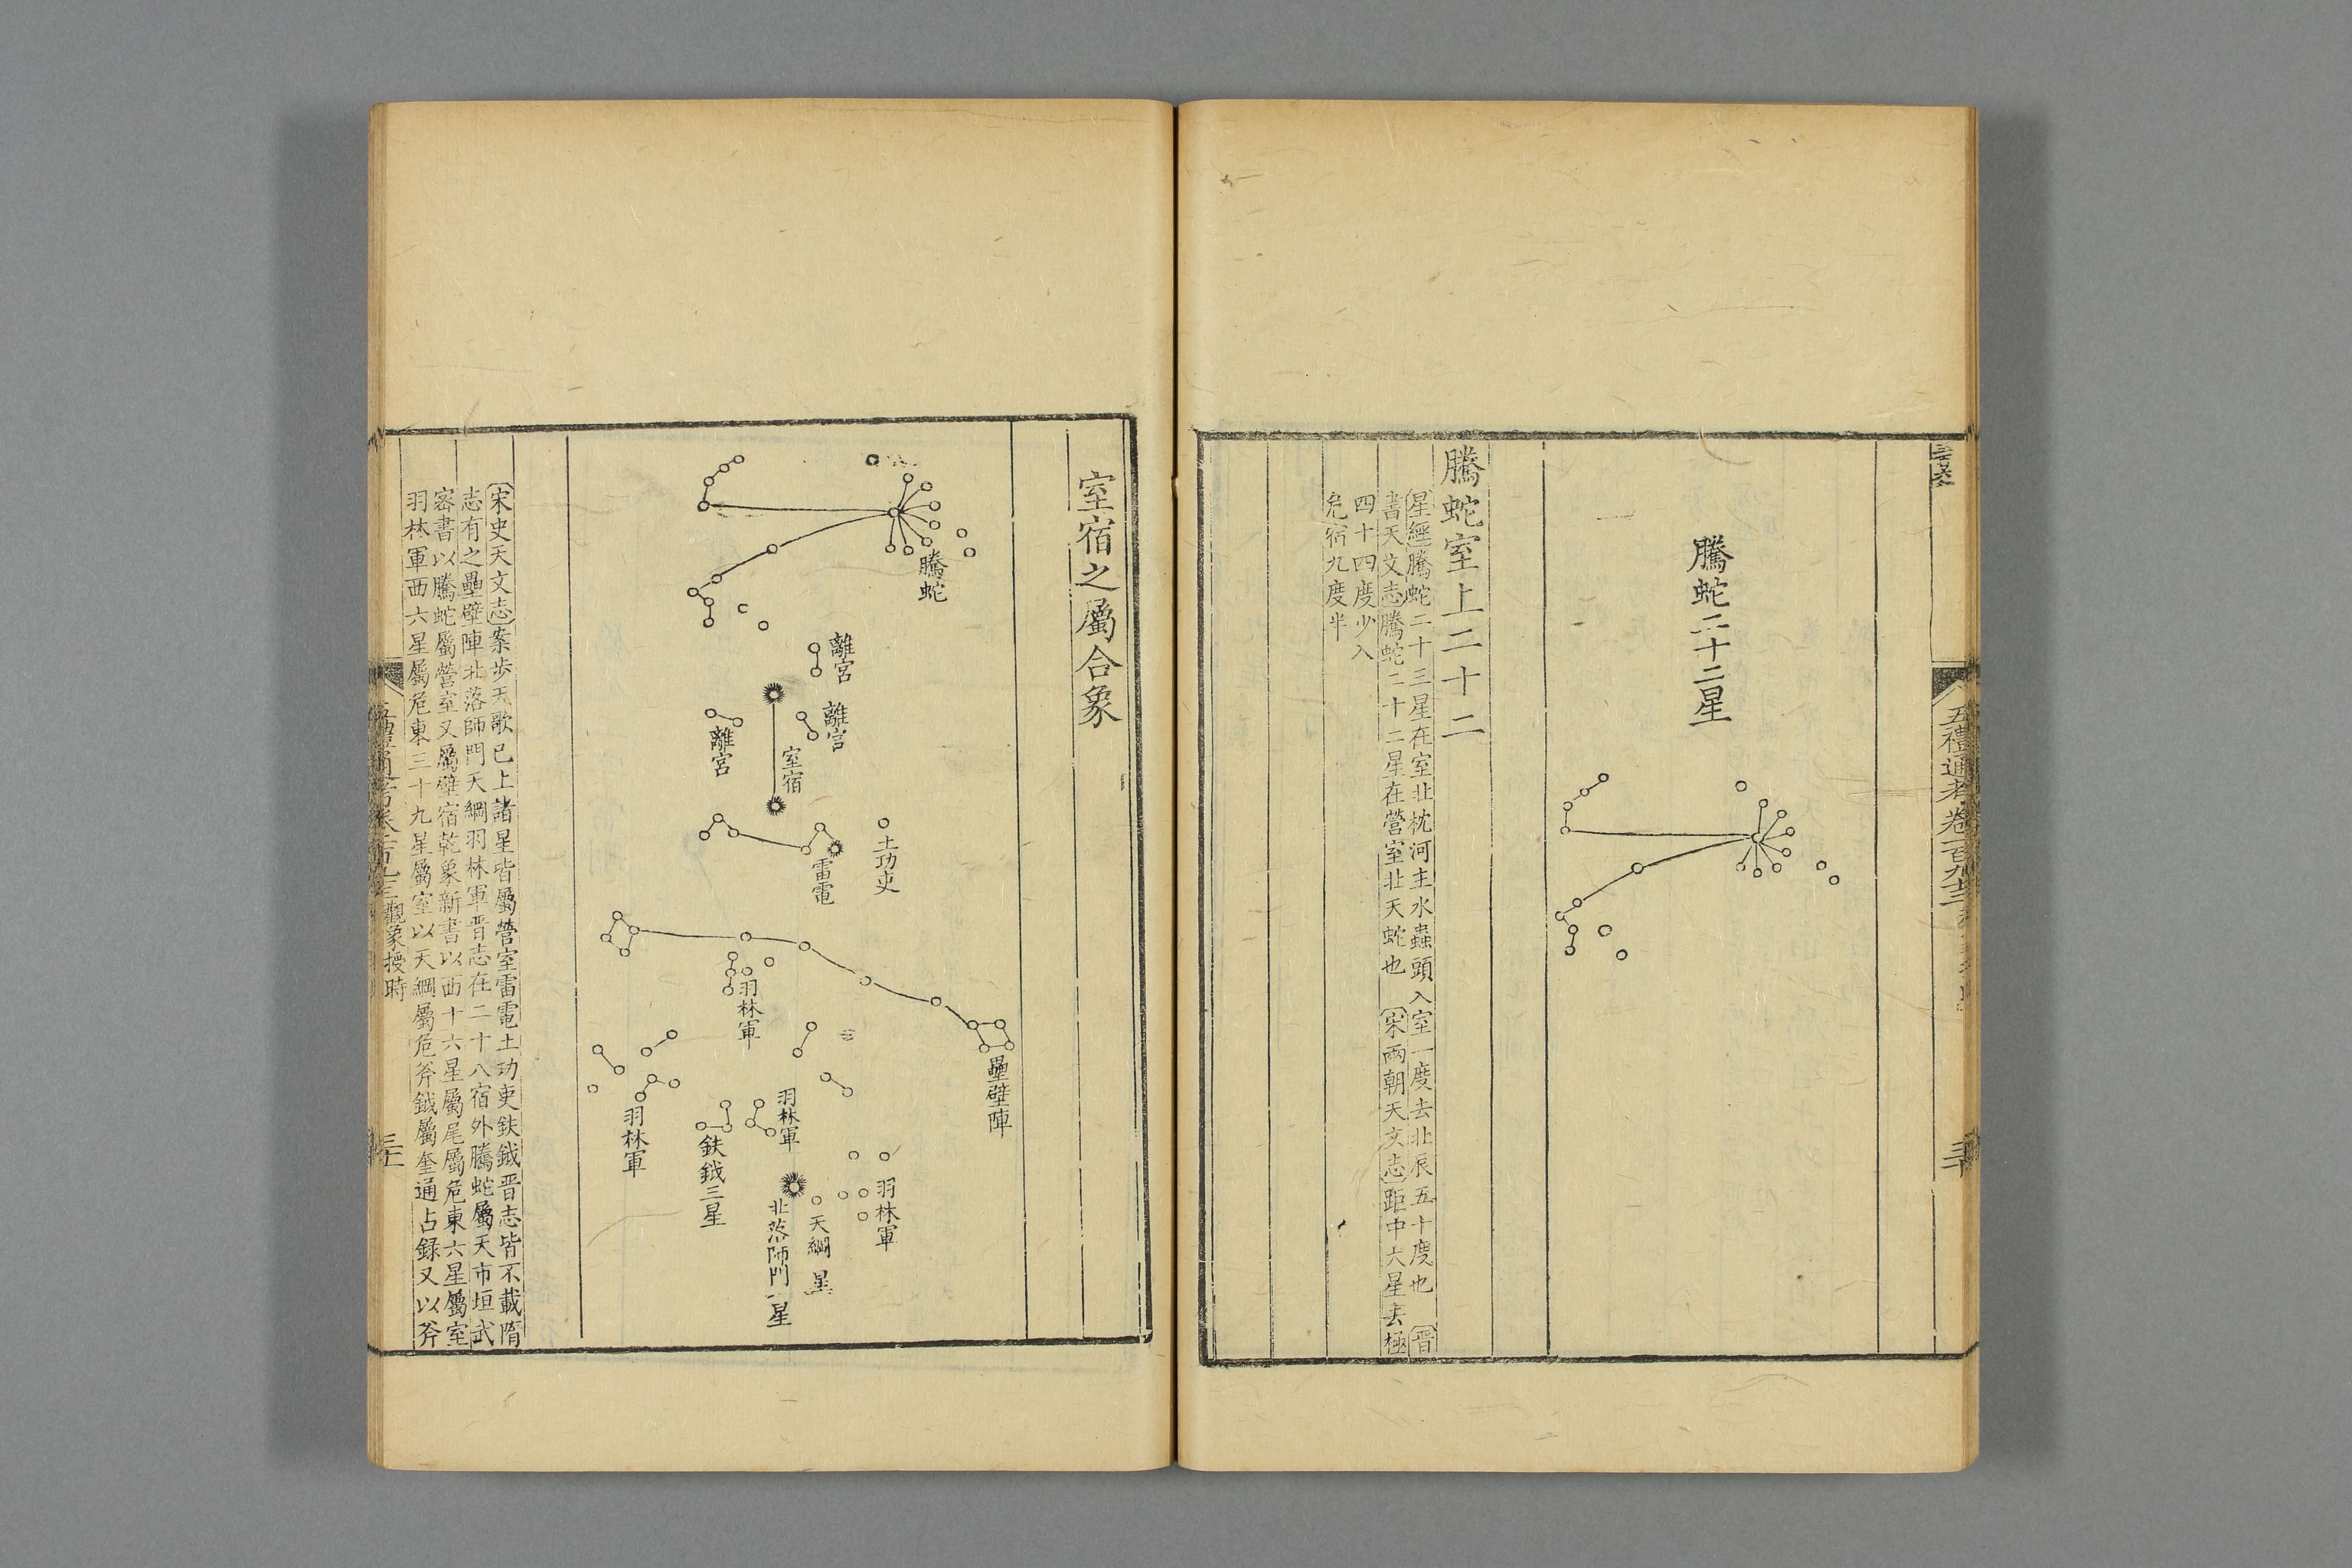 五禮通考卷一百九十三
騰蛇二十二星
騰蛇室上二十二
〔星經〕騰蛇二十三星在室北枕河主水蟲頭入室一度去北辰五十度也 〔晋
書天文志〕騰蛇二十二星在營室北天蛇也 〔宋兩朝天文志〕距中大星去極
四十四度少入
危宿九度半
室宿之屬合象
騰蛇
離宮
離宮
離宮
室宿
土功吏
雷電
羽林軍
壘壁陣
羽林軍
羽林軍
鈇鉞三星
羽林軍
天綱 星
北落師門一星
〔宋史天文志〕案步天歌已上諸星皆屬營室雷電土功吏鈇鉞晋志皆不載隋
志有之壘壁陣北落師門天綱羽林軍晋志在二十八宿外騰蛇屬天市垣武
密書以騰蛇屬營室又屬壁宿乾象新書以西十六星屬尾屬危東六星屬室
羽林軍西六星屬危東三十九星屬室以天綱屬危斧鉞屬奎通占録又以斧
五禮通考卷一百九十三 觀象授時